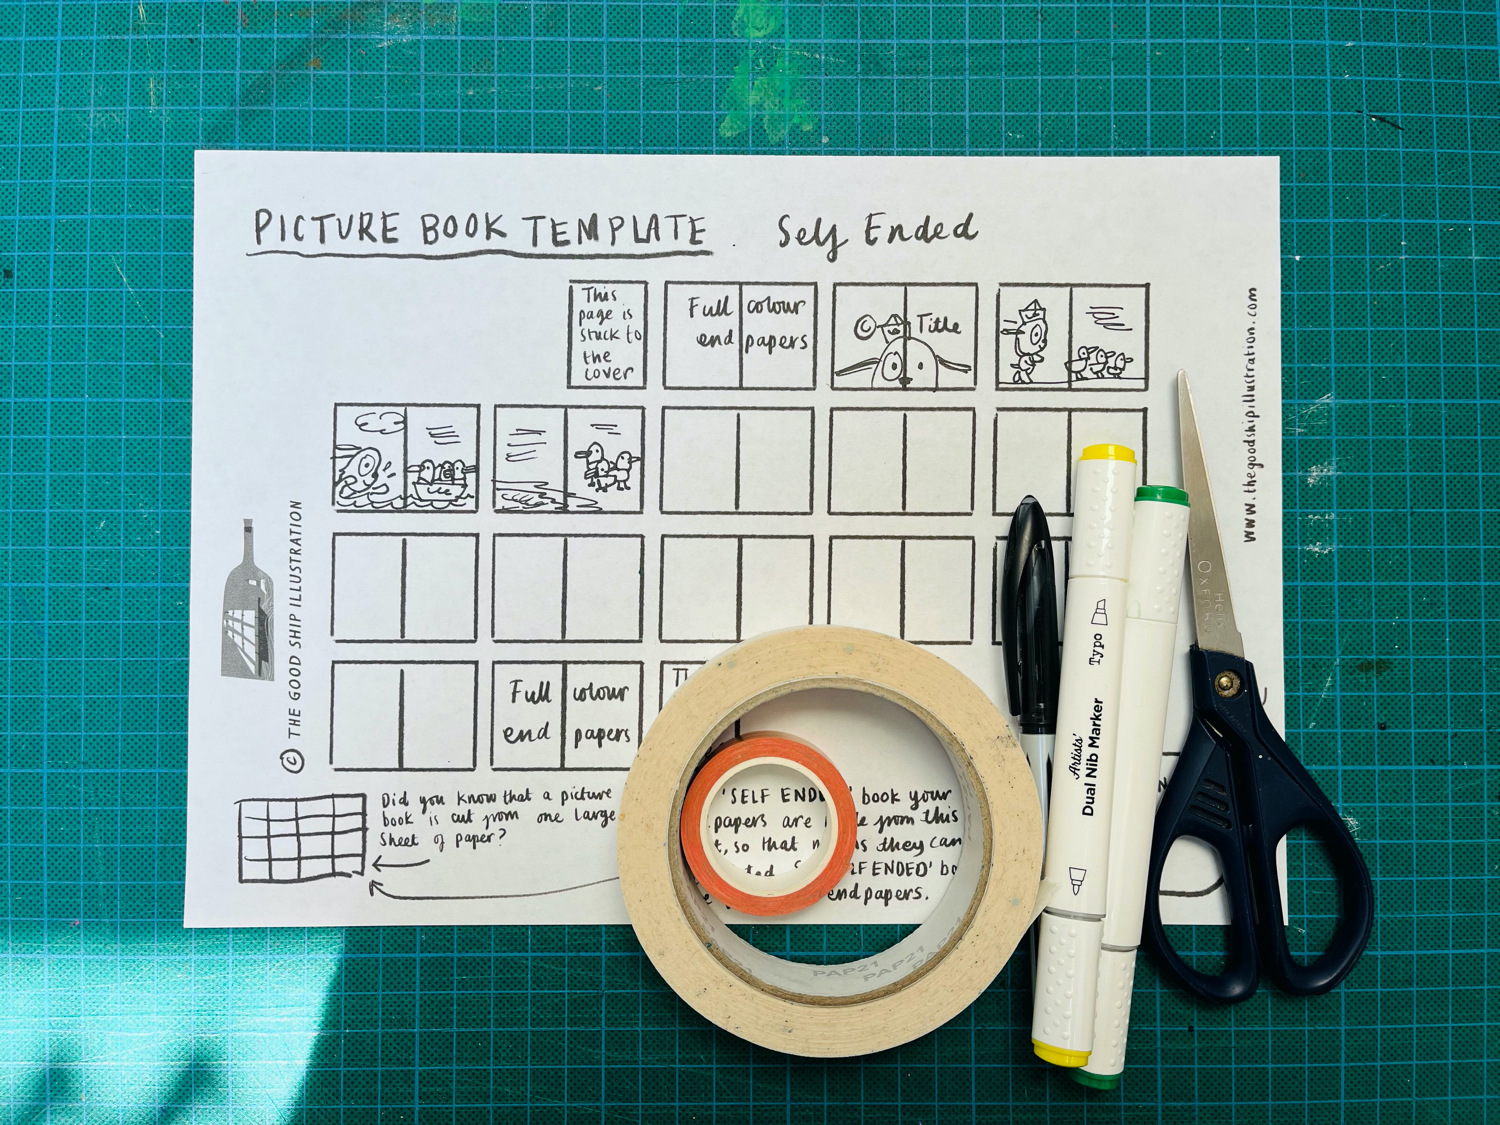 PICTURE BOOK TEMPLATE Self Ended
This
page is
stuck to
the
cover
Full colour
end papers
© Title
Full colour
end papers
www.thegoodshipillustration.com
© THE GOOD SHIP ILLUSTRATION
Did you know that a picture
book is cut from one large
sheet of paper?
'SELF END ' book your
papers are from this
so that they can
ENDED'
endpapers.
PAP21 PAP21 PAP21
Artists'
Dual Nib Marker Typo